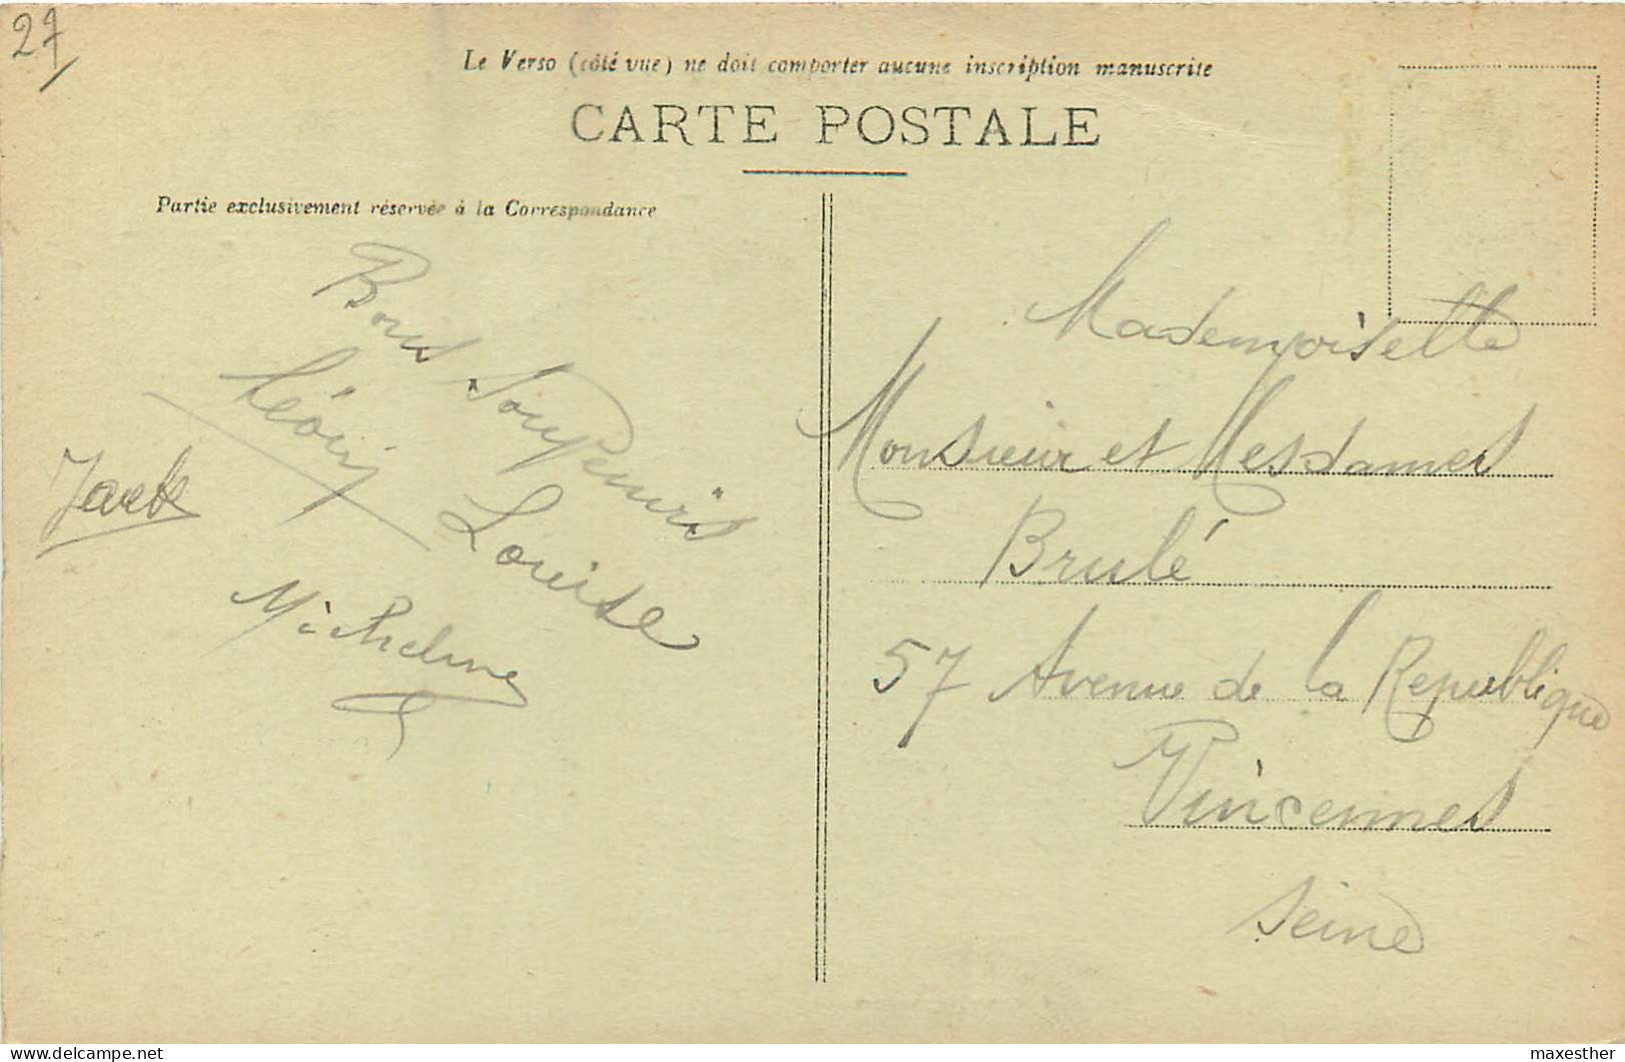 27
Le Verso (côté vue) ne doit comporter aucune inscription manuscrite
CARTE POSTALE
Partie exclusivement réservée à la Correspondance
Bons Souvenirs
Louise
Micheline
Mademoiselle
Monsieur et Mesdames
Brulé
57 Avenue de la Republique
Vincennes
Seine
delcampe.net
maxesther